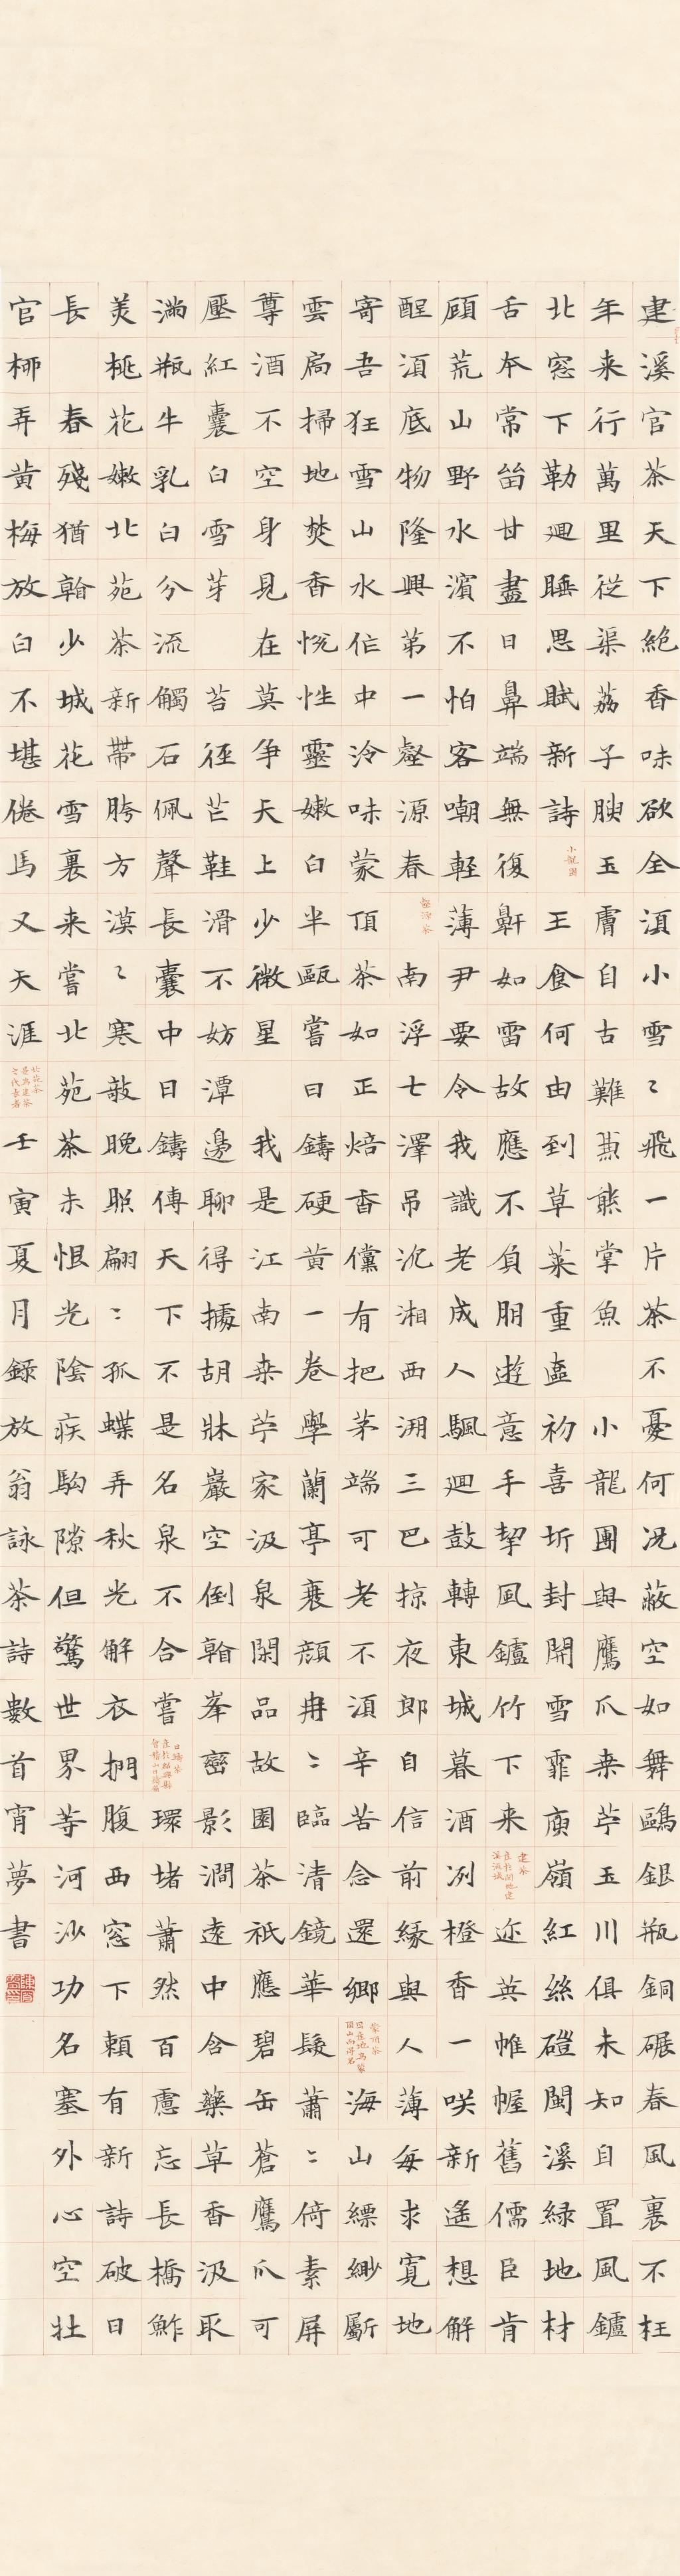 建溪官茶天下絶香味欲全湏小雪〻飛一片茶不憂何况蔽空如舞鷗銀瓶銅碾春風裏不枉
年来行萬里從渠荔子腴玉膚自古難兼熊掌魚 小龍團與鷹爪桒苧玉川俱未知自置風鑪
北窓下勒迴睡思賦新詩 小龍團 王食何由到草萊重奩初喜坼封開雪霏庾嶺紅絲磑閩溪緑地材
舌夲常甾甘盡日鼻端無復鼾如雷故應不負朋遊意手挈風鑪竹下来 建茶 近英帷幄舊儒臣肯
顧荒山野水濱不怕客嘲輕薄尹要令我識老成人颿迴鼓轉東城暮酒冽橙香一咲新遙想解
醒湏底物隆興第一壑源春 壑源茶 南浮七澤吊沉湘西泝三巴掠夜郎自信前緣與人薄每求寬地
寄吾狂雪山水作中泠味蒙頂茶如正焙香儻有把茅端可老不湏辛苦念還鄉 蒙頂茶 海山縹緲斸
雲扃掃地焚香悦性靈嫩白半甌嘗日鑄硬黄一卷學蘭亭衰顔冉〻臨清鏡華髮蕭〻倚素屏
尊酒不空身見在莫争天上少微星 我是江南桒苧家汲泉閑品故園茶祇應碧缶蒼鷹爪可
壓紅囊白雪芽 苔徑芒鞋滑不妨潭邊聊得據胡牀巖空倒翰峯巒影澗遠中含藥草香汲取
滿瓶牛乳白分流觸石佩聲長囊中日鑄傳天下不是名泉不合嘗 日鑄茶 環堵蕭然百慮忘長橋鮓
美桃花嫩北苑茶新帶胯方漠〻寒敼晚照翩〻孤蝶弄秋光解衣捫腹西窓下頼有新詩破日
長 春殘猶翰少城花雪裏来嘗北苑茶未恨光陰疾駒隙但驚世界等河沙功名塞外心空壮
官栁弄黄梅放白不堪倦馬又天涯 壬寅夏月録放翁詠茶詩數首宵夢書